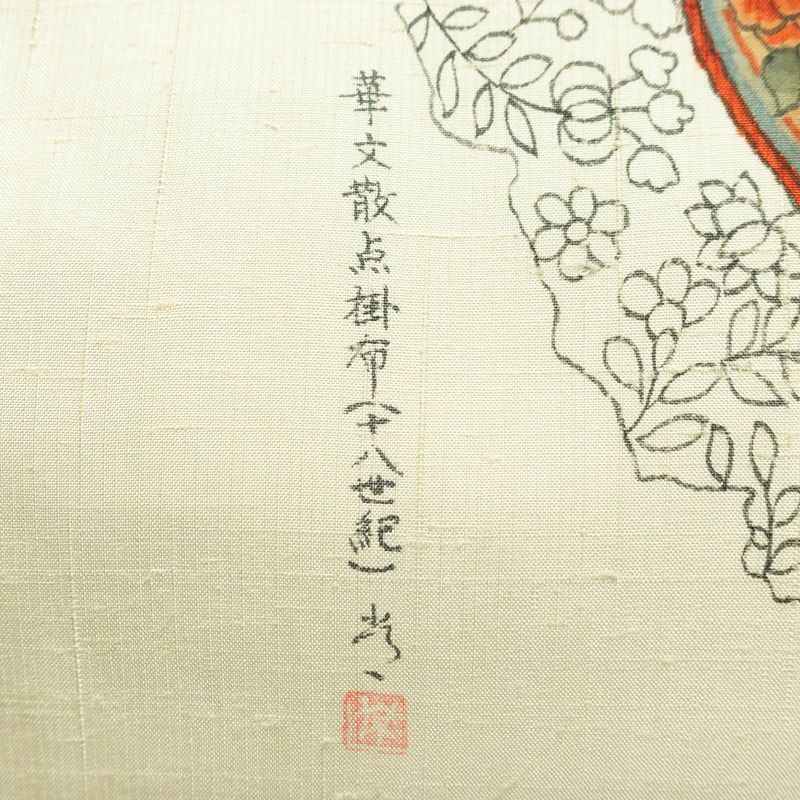 華文散点掛布(十八世紀)